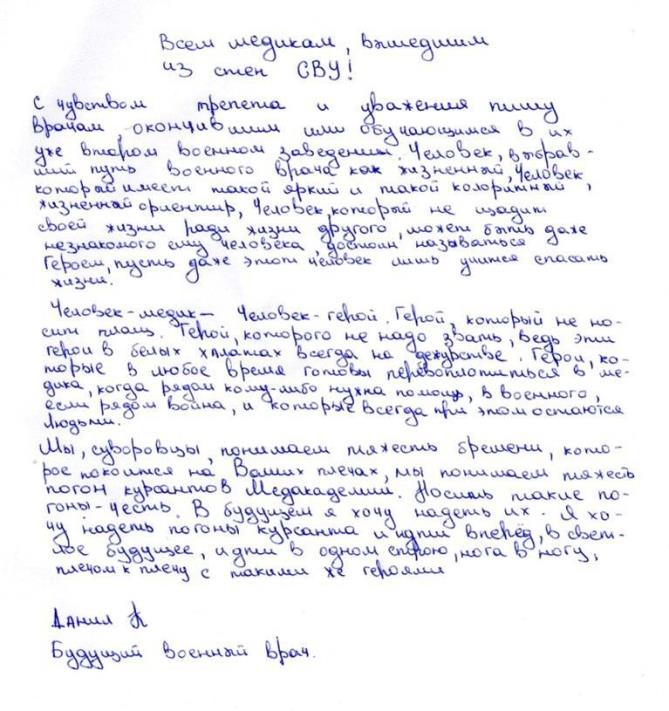 Всем медикам, вышедшим
из стен СВУ!
С чувством трепета и уважения пишу
врачам, окончившим или обучающимся в их
уже втором военном заведении. Человек, выбрав-
ший путь военного врача как жизненный, Человек
который имеет такой яркий и такой колоритный,
жизненный ориентир, Человек, который не щадит
своей жизни ради жизни другого, может быть даже
незнакомого ему человека, достоин называться
Героем, пусть даже этот человек лишь учится спасать
жизни.
Человек-медик — Человек-герой. Герой, который не но-
сит плащ. Герой, которого не надо звать, ведь эти
герои в белых халатах всегда на дежурстве. Герои, ко-
торые в любое время готовы перевоплотиться в ме-
дика, когда рядом кому-либо нужна помощь, в военного,
если рядом война, и которые всегда при этом остаются
людьми.
Мы, суворовцы, понимаем тяжесть бремени, кото-
рое покоится на Ваших плечах, мы понимаем тяжесть
погон курсантов Медакадемии. Носить такие по-
гоны-честь. В будущем я хочу надеть их. Я хо-
чу надеть погоны курсанта и идти вперёд, в свет-
лое будущее, идти в одном строю, нога в ногу,
плечом к плечу с такими же героями
Данил К
Будущий военный врач.